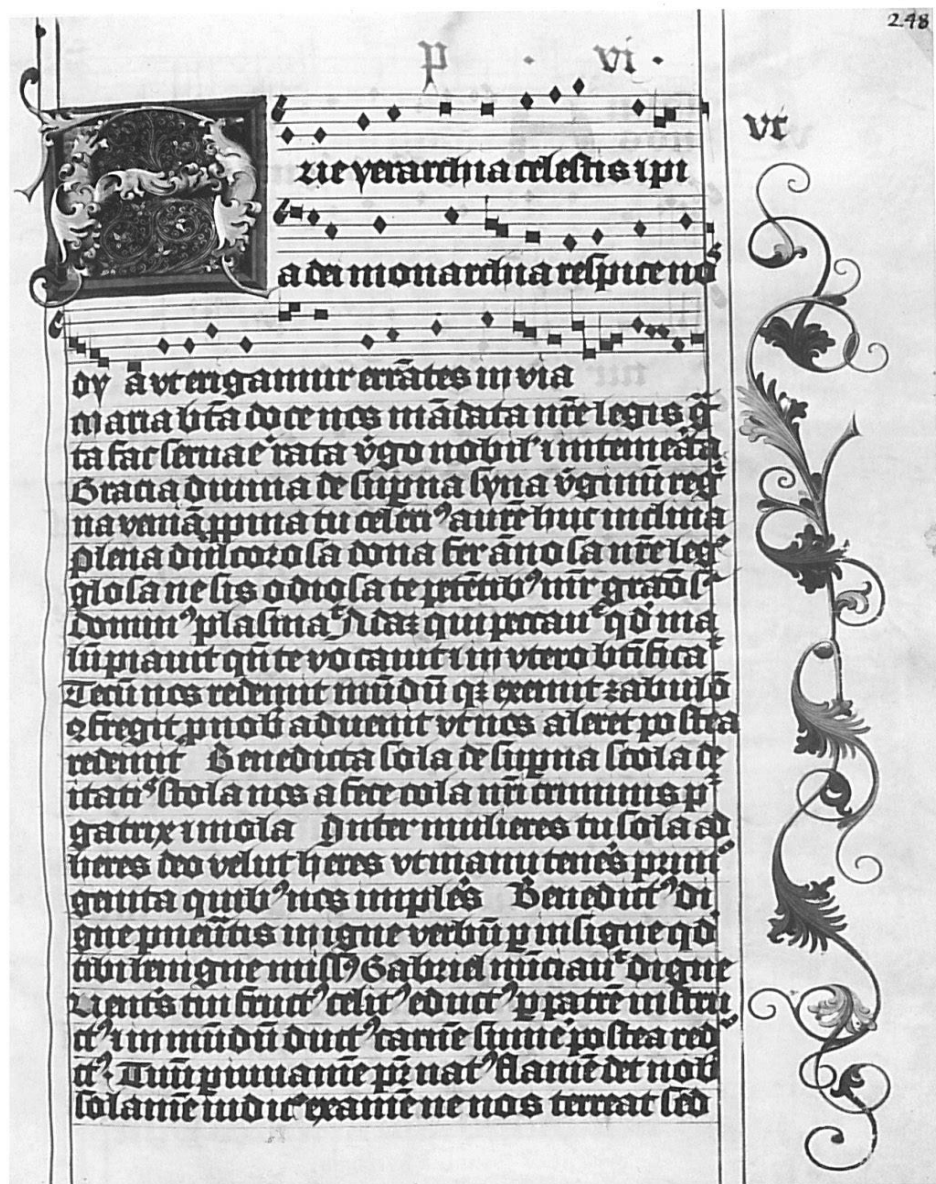 248
p · vi ·
vt
Aue yerarchia celestis ipi
a dei monarchia respice nō
dy a vt erigamur errātes in via
maria btā doce nos mādata nr̄e legis
ta fac serua rata v̄go nobil intemerata
Gracia diuina de sup̄na syna v̄ginū reg
na veniā ꝓpina tu celeri aurē huc inclina
plena dulcorosa dona fer ānosa nr̄e leg
glosa ne sis odiosa te petētibꝰ
dominꝰ plasma Adaꝫ qui peccau qd ma
lū piauit qn̄ te vocauit
Tecū nos redemit mūdū qꝫ exemit zabulō
ꝯfregit ꝓ nob aduenit vt nos aleret postea
redemit Benedicta sola de sup̄na scola de
itatis stola nos a fece cola nr̄i criminis p
gatrix imola Inter mulieres tu sola ad
heres deo velut heres vt manu tenes
genita quibꝰ nos imples Benedictꝰ di
gne in igne verbū ꝑ insigne qd
tibi lenigne missꝰ Gabriel nūciau digne
Uentˢ tui fructꝰ celitꝰ eductꝰ ꝑ patrē instru
ctꝰ in mūdū ductꝰ carnē sume postea red
natꝰ flamē det nob
solamē iudicˢ examē ne nos terreat sed